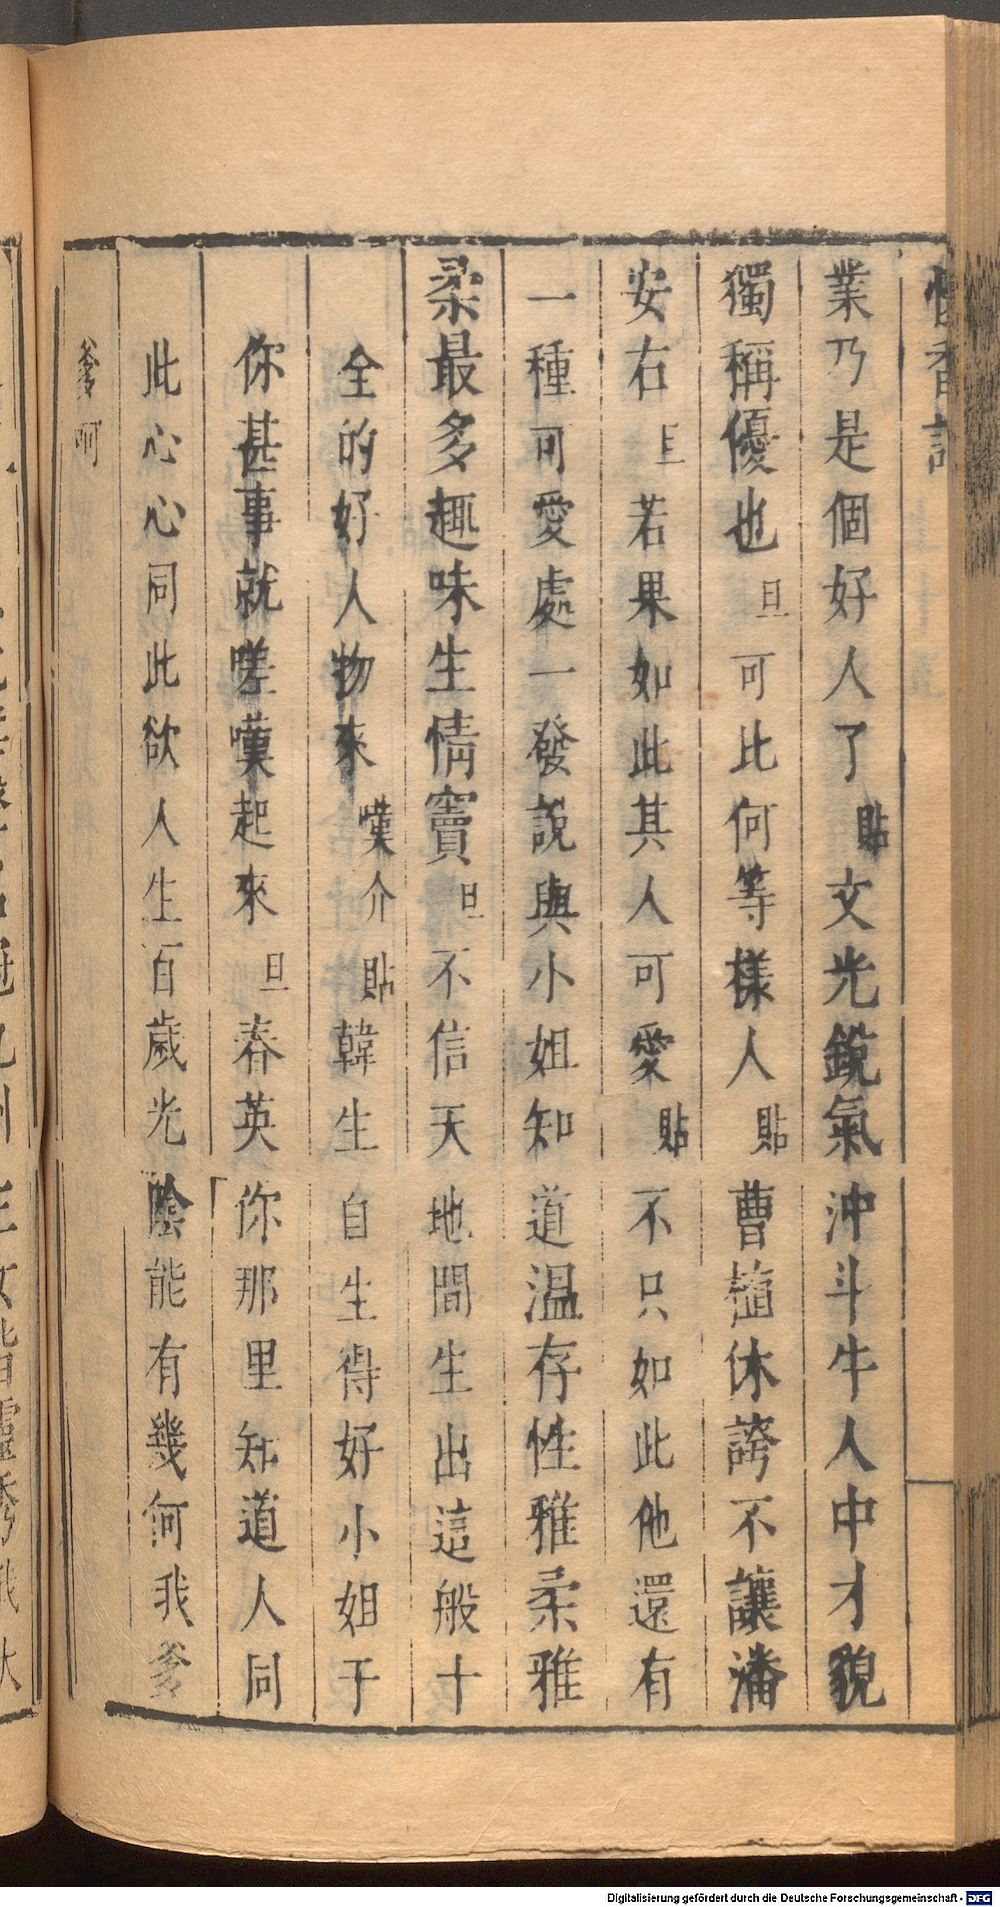 懷香記
業乃是個好人了貼文光銳氣沖斗牛人中才貌
獨稱優也旦可比何等樣人貼曹植休誇不讓潘
安右旦若果如此其人可愛貼不只如此他還有
一種可愛處一發說與小姐知道溫存性雅柔雅
柔最多趣味生情竇旦不信天地間生出這般十
全的好人物來嘆介貼韓生自生得好小姐于
你甚事就嗟嘆起來旦春英你那里知道人同
此心心同此欲人生百歲光陰能有幾何我爹
爹呵
Digitalisierung gefördert durch die Deutsche Forschungsgemeinschaft - DFG